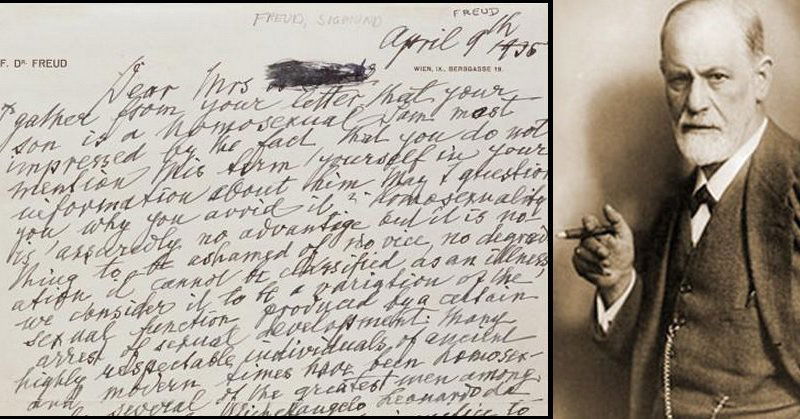 FREUD, SIGMUND
FREUD
April 9th 1935
F. DR. FREUD
WIEN, IX., BERGGASSE 19.
Dear Mrs
gather from your letter that your
son is a homosexual. I am most
impressed by the fact, that you do not
mention this term yourself in your
information about him. May I question
you why you avoid it? Homosexuality
is assuredly no advantage but it is no-
thing to be ashamed of, no vice, no degrad
ation, it cannot be classified as an illness,
we consider it to be a variation of the
sexual function produced by a certain
arrest of sexual development. Many
highly respectable individuals of ancient
and modern times have been homosex-
several of the greatest men among
Michelangelo, Leonardo da
to